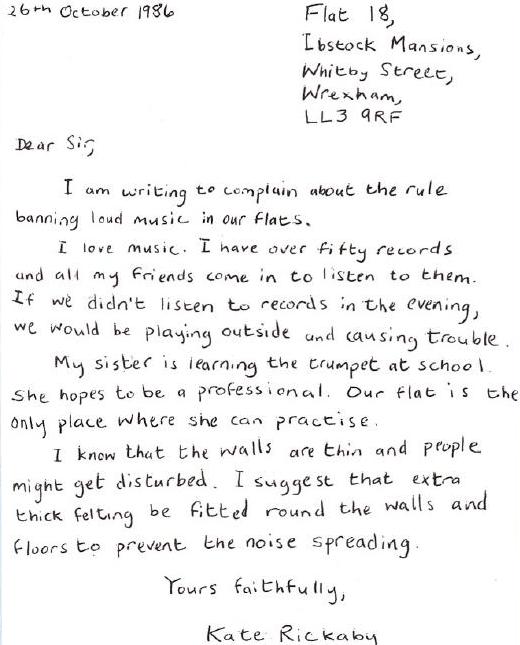 26th October 1986
Flat 18,
Ibstock Mansions,
Whitby Street,
Wrexham,
LL3 9RF
Dear Sir,
I am writing to complain about the rule
banning loud music in our flats.
I love music. I have over fifty records
and all my friends come in to listen to them.
If we didn't listen to records in the evening,
we would be playing outside and causing trouble.
My sister is learning the trumpet at school.
She hopes to be a professional. Our flat is the
only place where she can practise.
I know that the walls are thin and people
might get disturbed. I suggest that extra
thick felting be fitted round the walls and
floors to prevent the noise spreading.
Yours faithfully,
Kate Rickaby